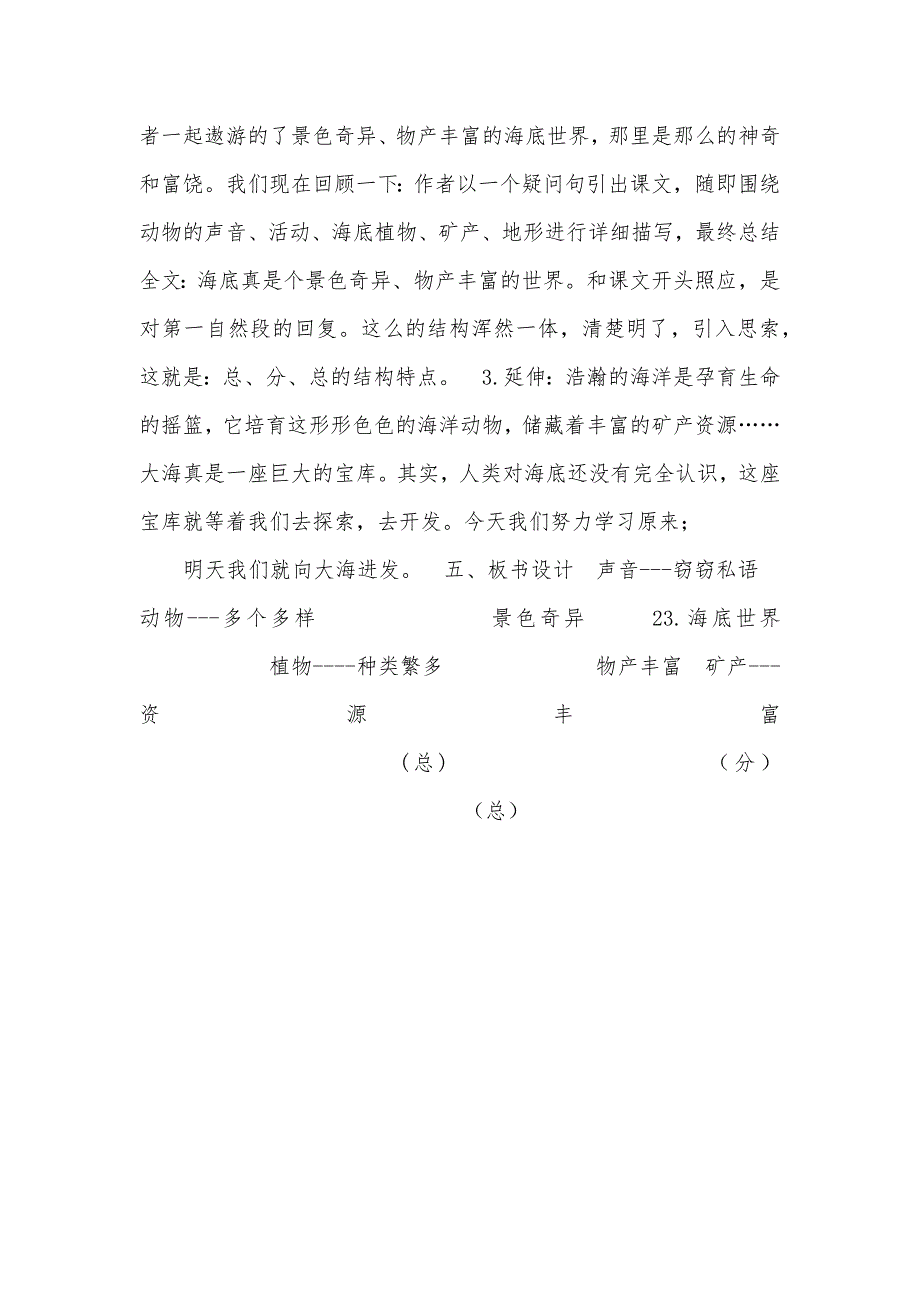 者一起遨游的了景色奇异、物产丰富的海底世界，那里是那么的神奇
和富饶。我们现在回顾一下：作者以一个疑问句引出课文，随即围绕
动物的声音、活动、海底植物、矿产、地形进行详细描写，最终总结
全文：海底真是个景色奇异、物产丰富的世界。和课文开头照应，是
对第一自然段的回复。这么的结构浑然一体，清楚明了，引入思索，
这就是：总、分、总的结构特点。 3.延伸：浩瀚的海洋是孕育生命
的摇篮，它培育这形形色色的海洋动物，储藏着丰富的矿产资源……
大海真是一座巨大的宝库。其实，人类对海底还没有完全认识，这座
宝库就等着我们去探索，去开发。今天我们努力学习原来；
明天我们就向大海进发。 五、板书设计 声音---窃窃私语
动物---多个多样 景色奇异 23.海底世界
植物----种类繁多 物产丰富 矿产---
资 源 丰 富
(总) （分）
（总）